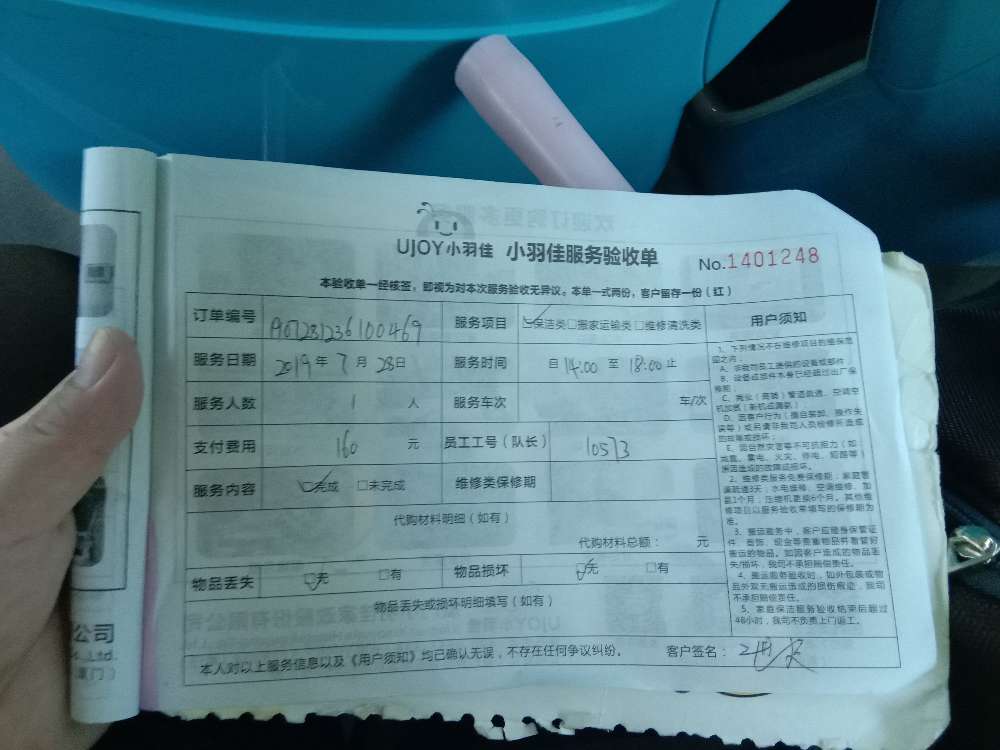 UJOY小羽佳 小羽佳服务验收单 No.1401248
本验收单一经核签，即视为对本次服务验收无异议。本单一式两份，客户留存一份（红）
订单编号 A07281236100469 服务项目 保洁类 搬家运输类 维修清洗类 用户须知
服务日期 2019年7月28日 服务时间 自14:00至18:00止
服务人数 1人 服务车次 车/次
支付费用 160元 员工工号（队长） 10573
服务内容 完成 未完成 维修类保修期
代购材料明细（如有）
代购材料总额： 元
物品丢失 无 有 物品损坏 无 有
物品丢失或损坏明细填写（如有）
本人对以上服务信息以及《用户须知》均已确认无误，不存在任何争议纠纷。 客户签名：
1、下列情况不在维修项目的维保范
围之内：
A、非我司员工提供的设备或部件；
B、设备或部件本身已经超过出厂保
修期；
C、商业（商铺）管道疏通、空调空
机加氨（新机或漏氨）
D、因客户行为（擅自装卸、操作失
误等）或另请非我司人员检修所造成
的故障或损坏；
E、因自然灾害等不可抗拒力（如：
地震、雷电、火灾、停电、短路等）
原因造成的故障或损坏。
2、维修类服务免费保修期：家庭管
道疏通3天；水电维修、空调维修、加
氨1个月；压缩机更换6个月。其他维
修项目以服务验收常填写的保修期为
准。
3、搬运服务中，客户应随身保管证
件、首饰、现金等贵重物品并看管好
搬运的物品。如因客户造成的物品丢
失/损坏，我司不承担赔偿责任。
4、搬运服务验收时，如外包装或物
品外观无搬运造成的损伤痕迹，我司
不承担赔偿责任。
5、家庭保洁服务验收结束后超过
48小时，我司不负责上门返工。
公司
.,Ltd.